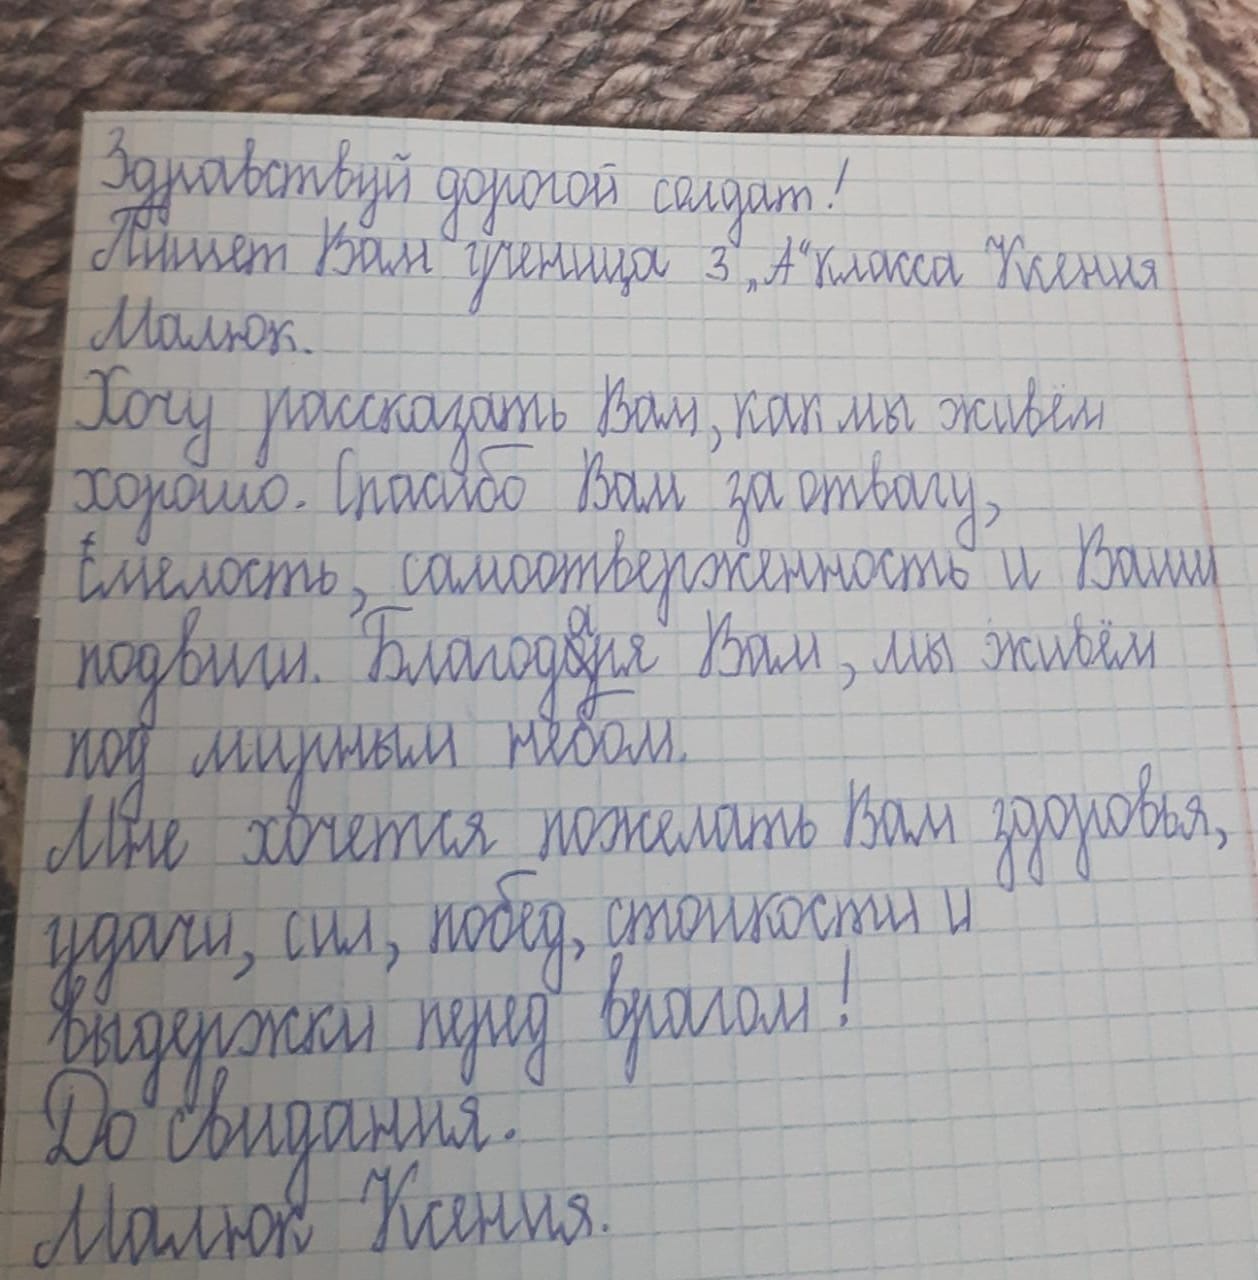 Здравствуй дорогой солдат!
Пишет Вам ученица 3 „А“ класса Ксения
Малюк.
Хочу рассказать Вам, как мы живём
хорошо. Спасибо Вам за отвагу,
смелость, самоотверженность и Ваши
подвиги. Благодаря Вам, мы живём
под мирным небом.
Мне хочется пожелать Вам здоровья,
удачи, сил, побед, стоикости и
выдержки перед врагом!
До свидания.
Малюк Ксения.